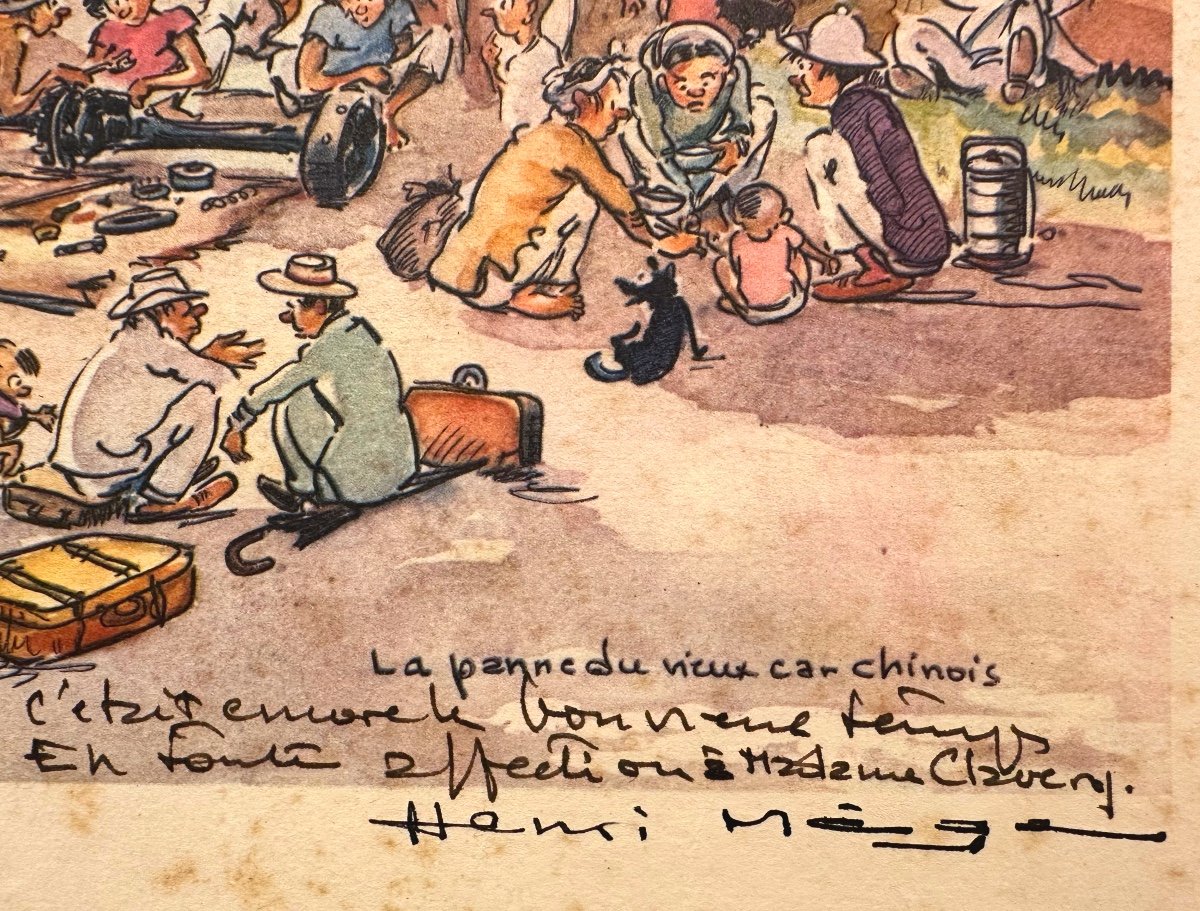 La panne du vieux car chinois
C'était encore le bon vieux temps
En toute affection à Madame Clavery.
Henri Mège